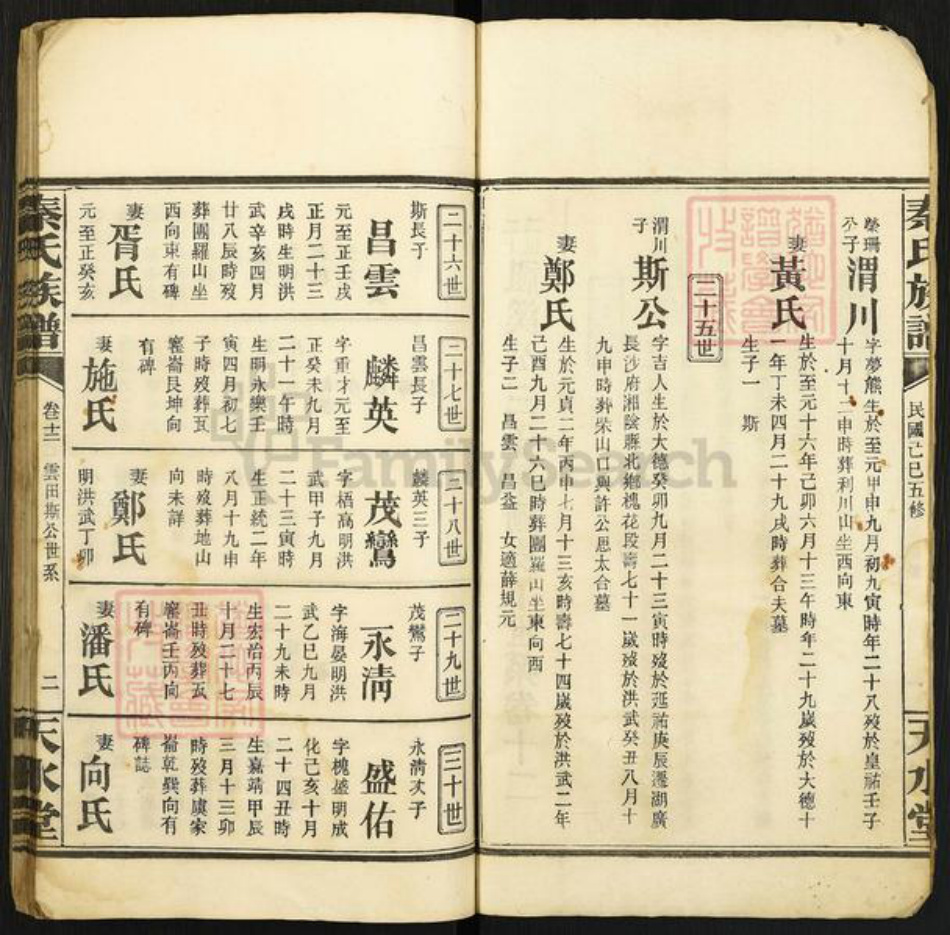 秦氏族譜
民國己巳五修
天水堂
榮珊公子
渭川
字夢熊生於至元甲申九月初九寅時年二十八歿於皇祐壬子
十月十二申時葬利川山坐西向東
妻黃氏
生於至元十六年己卯六月十三午時年二十九歲歿於大德十
一年丁未四月二十九戌時葬合夫墓
生子一 斯
二十五世
渭川子
斯公
字吉人生於大德癸卯九月二十三寅時歿於延祐庚辰遷湖廣
長沙府湘陰縣北鄉槐花段壽七十一歲歿於洪武癸丑八月十
九申時葬柴山口與許公思太合墓
妻鄭氏
生於元貞二年丙申七月十三亥時壽七十四歲歿於洪武二年
己酉九月二十六巳時葬團羅山坐東向西
生子二 昌雲 昌益 女適薛規元
二十六世
斯長子
昌雲
元至正壬戌
正月二十三
戌時生明洪
武辛亥四月
廿八辰時歿
葬團羅山坐
西向東有碑
妻胥氏
元至正癸亥
二十七世
昌雲長子
麟英
字重才元至
正癸未九月
二十一午時
生明永樂壬
寅四月初七
子時歿葬瓦
窰崙艮坤向
有碑
妻施氏
二十八世
麟英三子
茂鸞
字梧高明洪
武甲子九月
二十三寅時
生正統二年
八月十九申
時歿葬地山
向未詳
妻鄭氏
明洪武丁卯
二十九世
茂鸞子
永清
字海晏明洪
武乙巳九月
二十九未時
生宏治丙辰
十月二十七
丑時歿葬瓦
窰崙壬丙向
有碑
妻潘氏
三十世
永清次子
盛佑
字槐盛明成
化己亥十月
二十四丑時
生嘉靖甲辰
三月十三卯
時歿葬虞家
崙乾巽向有
碑誌
妻向氏
秦氏族譜
卷十二 雲田斯公世系
二
天水堂
FamilySearch